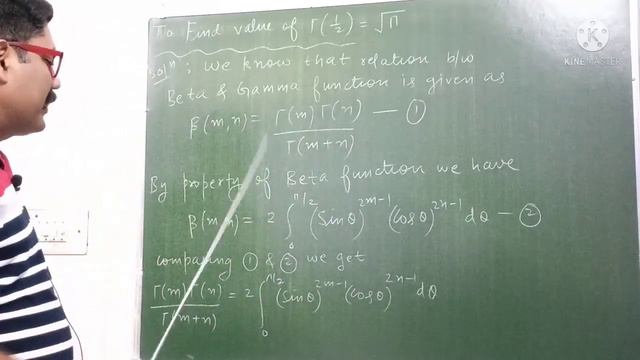 To Find value of Γ(1/2) = √π
Solⁿ; We know that relation b/w
Beta & Gamma function is given as
β(m,n) = Γ(m) Γ(n) / Γ(m+n) — ①
By property of Beta function we have
β(m,n) = 2 ∫₀^{π/2} (Sinθ)^{2m-1} (Cosθ)^{2n-1} dθ — ②
comparing ① & ② we get
Γ(m) Γ(n) / Γ(m+n) = 2 ∫₀^{π/2} (Sinθ)^{2m-1} (Cosθ)^{2n-1} dθ
KINEMASTER